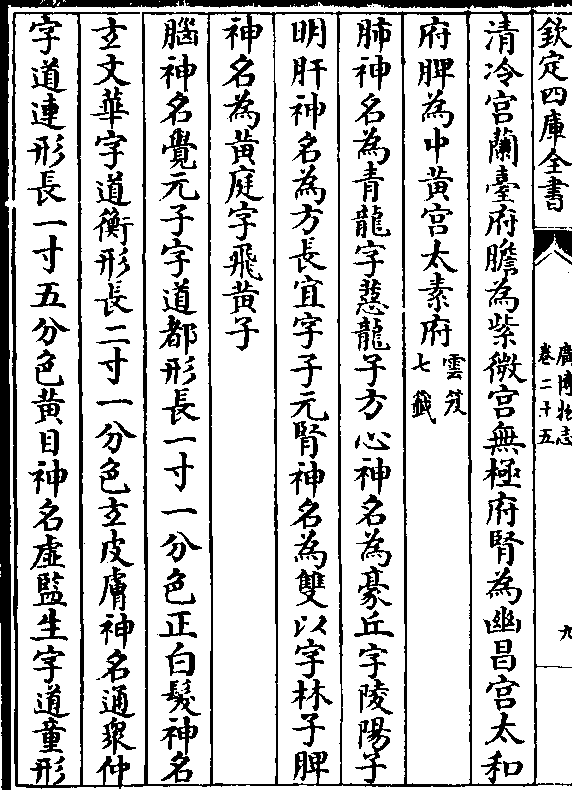 欽定四庫全書
廣博物志
卷二十五
九
清冷宮蘭臺府膽為紫微宮無極府腎為幽昌宮太和
府脾為中黃宮太素府雲笈七籤
肺神名為青龍字蒸龍子方心神名為豪丘字陵陽子
明肝神名為方長宜字子元腎神名為雙以字林子脾
神名為黃庭字飛黃子
腦神名覺元子字道都形長一寸一分色正白髮神名
玄文華字道衡形長二寸一分色玄皮膚神名通眾仲
字道連形長一寸五分色黃目神名虛監生字道童形